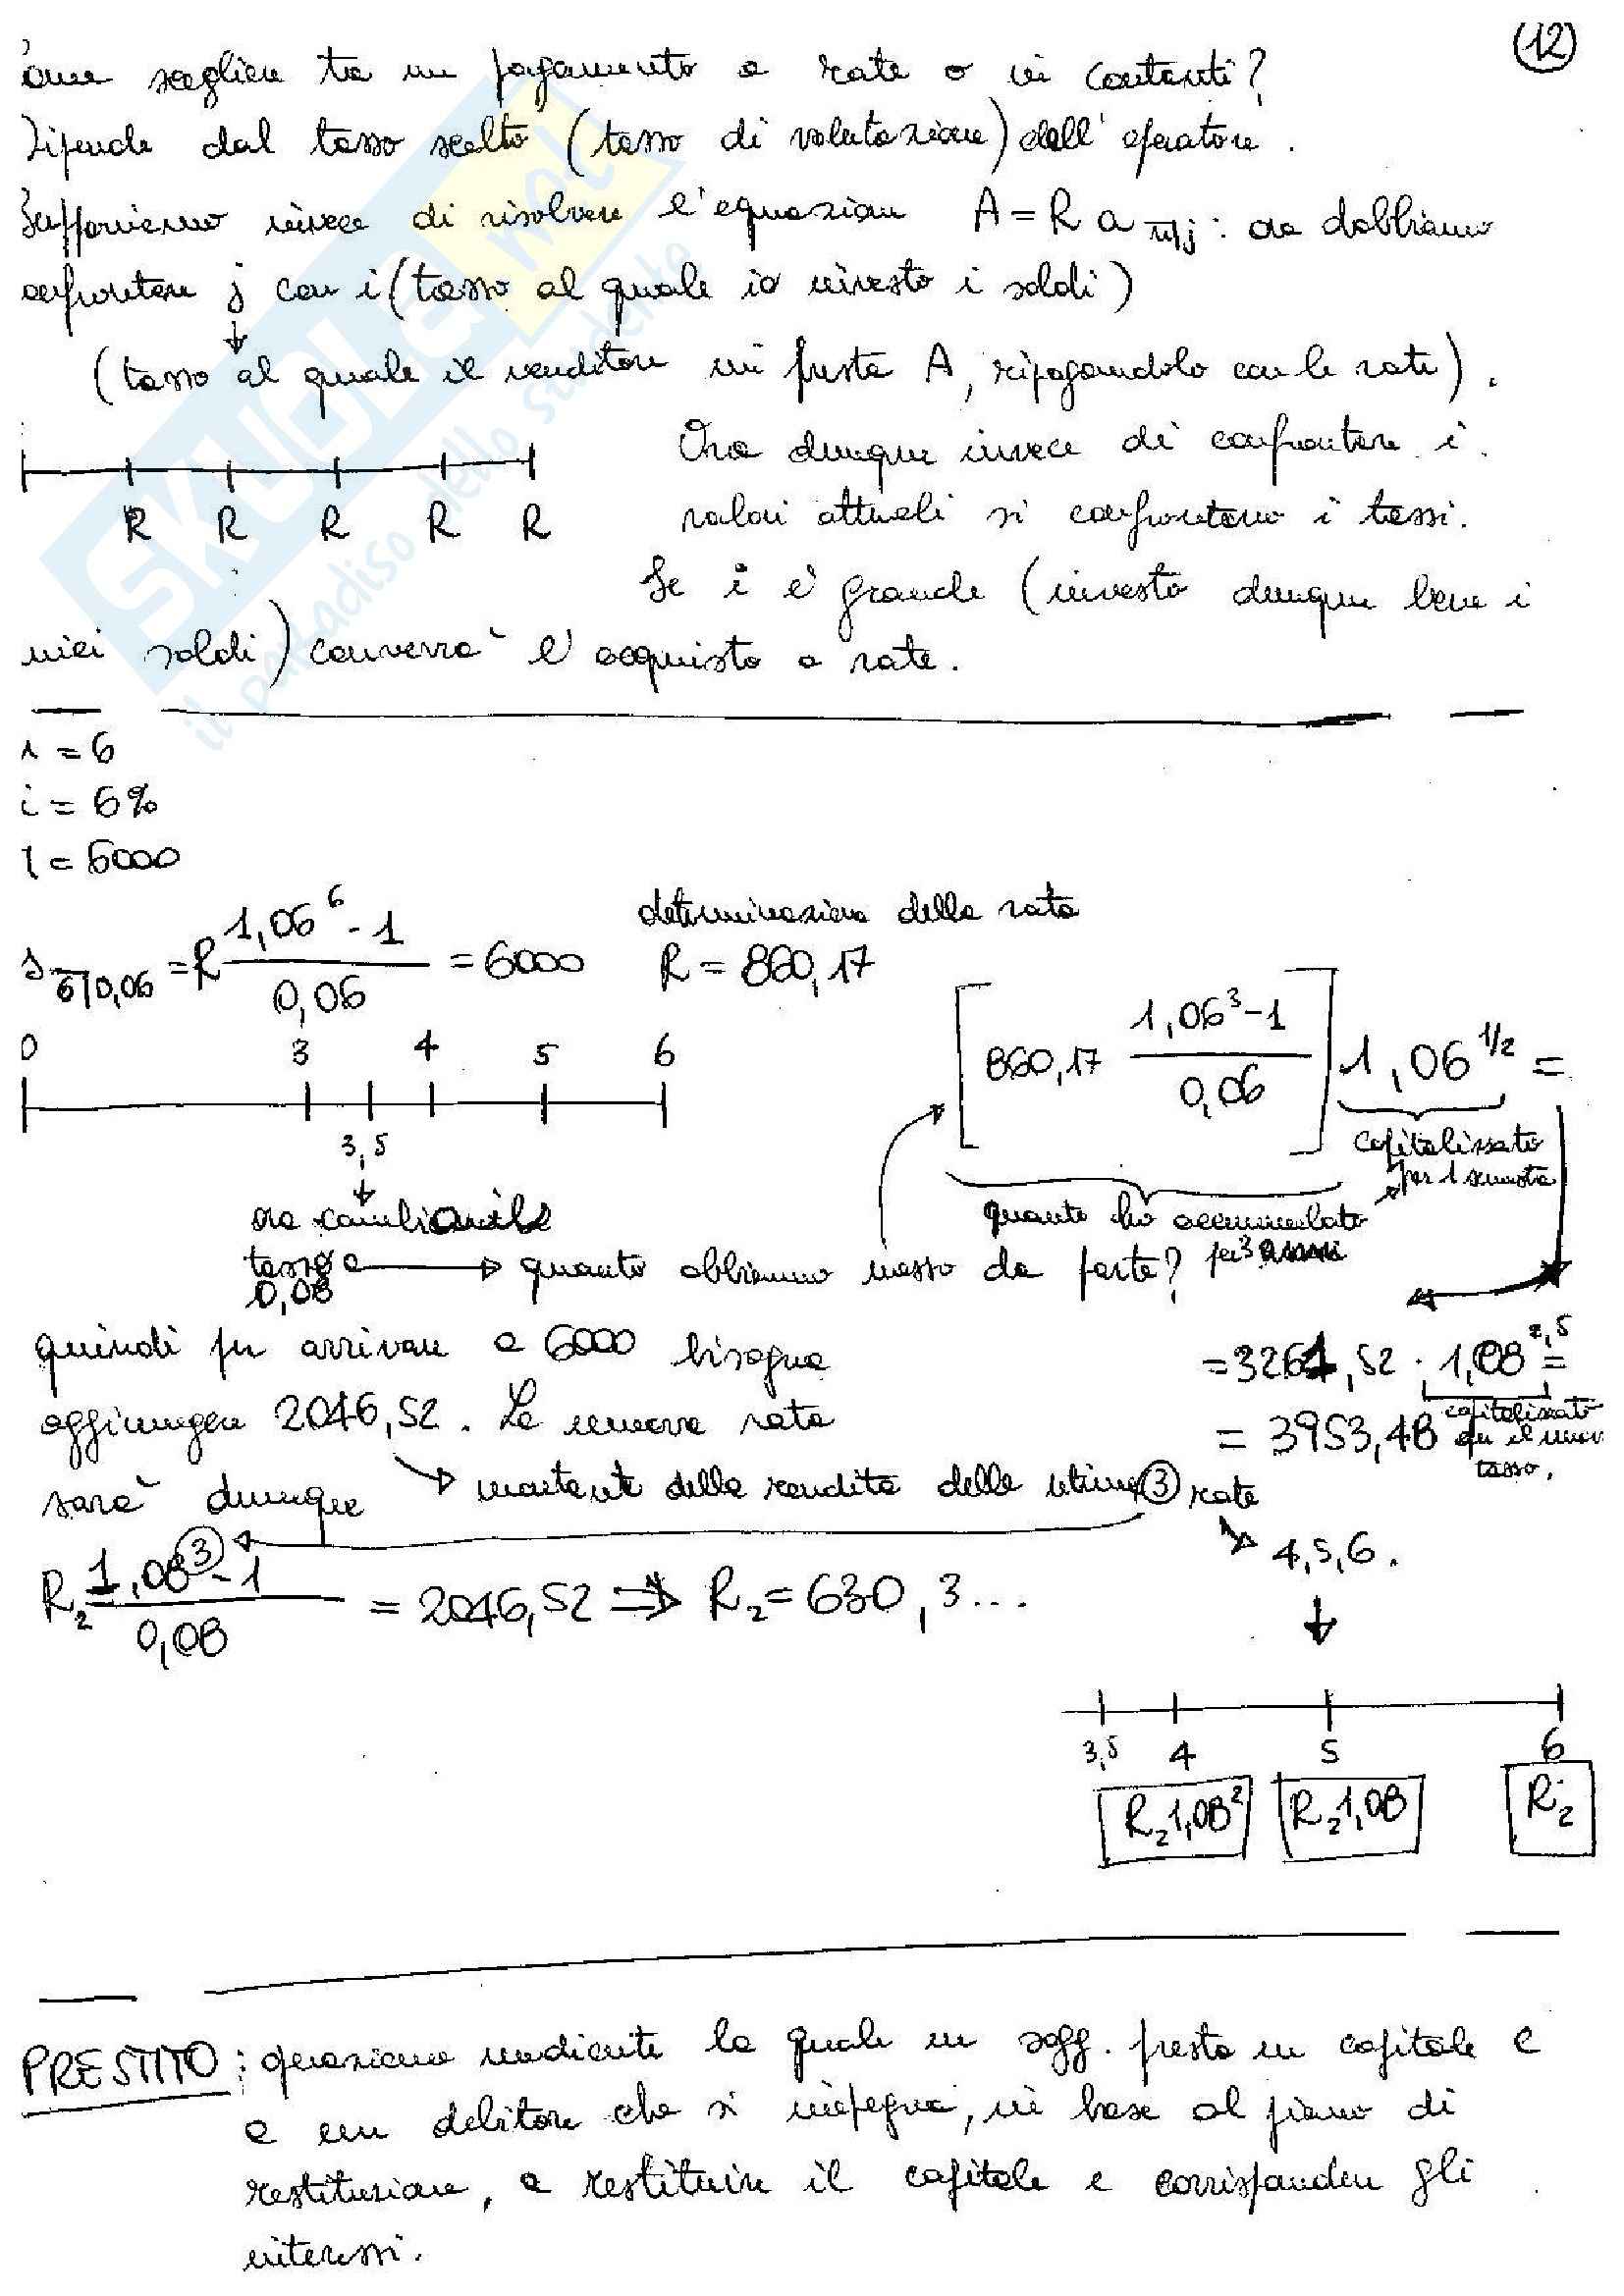 (12)
ome scegliere tra un pagamento a rate o in contanti?
Dipende dal tasso scelto (tasso di valutazione) dell'operatore.
Supponiamo invece di risolvere l'equazione A = R a n|j : ora dobbiamo
confrontare j con i (tasso al quale io investo i soldi)
(tasso al quale il venditore mi presta A, ripagandolo con le rate).
Ora dunque invece di confrontare i
R R R R R
valori attuali si confrontano i tassi.
Se i è grande (investo dunque bene i
miei soldi) converrà l'acquisto a rate.
= 6
i = 6%
= 6000
s 6|0,06 = R (1,06^6 - 1)/0,06 = 6000
determinazione della rata
R = 860,17
0 3 4 5 6
3,5
[860,17 (1,06^3 - 1)/0,06] 1,06^1/2 =
capitalizzato
per 1 semestre
quanto ho accumulato
per 3 anni
ora cambia il
tasso è
0,08
quanto abbiamo messo da parte?
quindi per arrivare a 6000 bisogna
aggiungere 2046,52. La nuova rata
sarà dunque
= 3261,52 · 1,08^2,5 =
capitalizzato
con il nuovo
tasso.
= 3953,48
montante della rendita delle ultime (3) rate
4,5,6.
R₂ (1,08^(3) - 1)/0,08 = 2046,52 ⇒ R₂ = 630,3...
3,5 4 5 6
R₂1,08² R₂1,08 R₂
PRESTITO: operazione mediante la quale un sogg. presta un capitale C
a un debitore che si impegna, in base al piano di
restituzione, a restituire il capitale e corrispondere gli
interessi.
SKUOLA.net
il paradiso dello studente